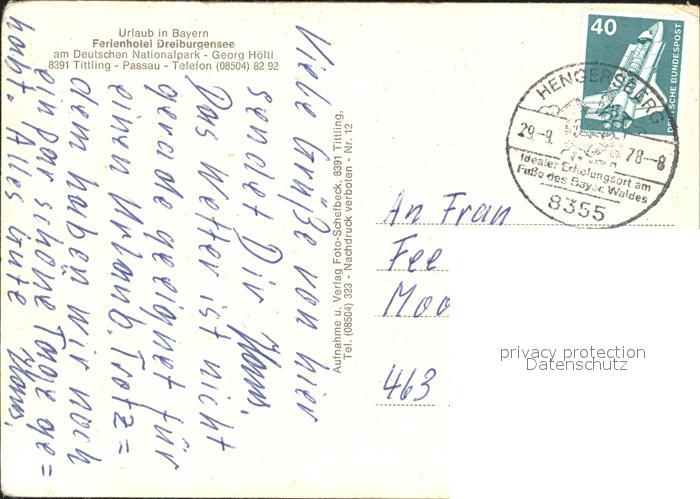 Urlaub in Bayern
Ferienhotel Dreiburgensee
am Deutschen Nationalpark - Georg Höltl
8391 Tittling - Passau - Telefon (08504) 82 92
Viele Grüße von hier
sendet Dir Hans.
Das Wetter ist nicht
gerade geeignet für
einen Urlaub. Trotz=
dem haben wir noch
ein par schöne Tage ge=
habt. Alles Gute Hans.
Aufnahme u. Verlag Foto-Scheibeck, 8391 Tittling,
Tel. (08504) 323 - Nachdruck verboten - Nr. 12
40
DEUTSCHE BUNDESPOST
HENGERSBERG
29.-9. 78--8
Idealer Erholungsort am
Fuße des Bayer. Waldes
8355
An Frau
Fee
Moo
463
privacy protection
Datenschutz